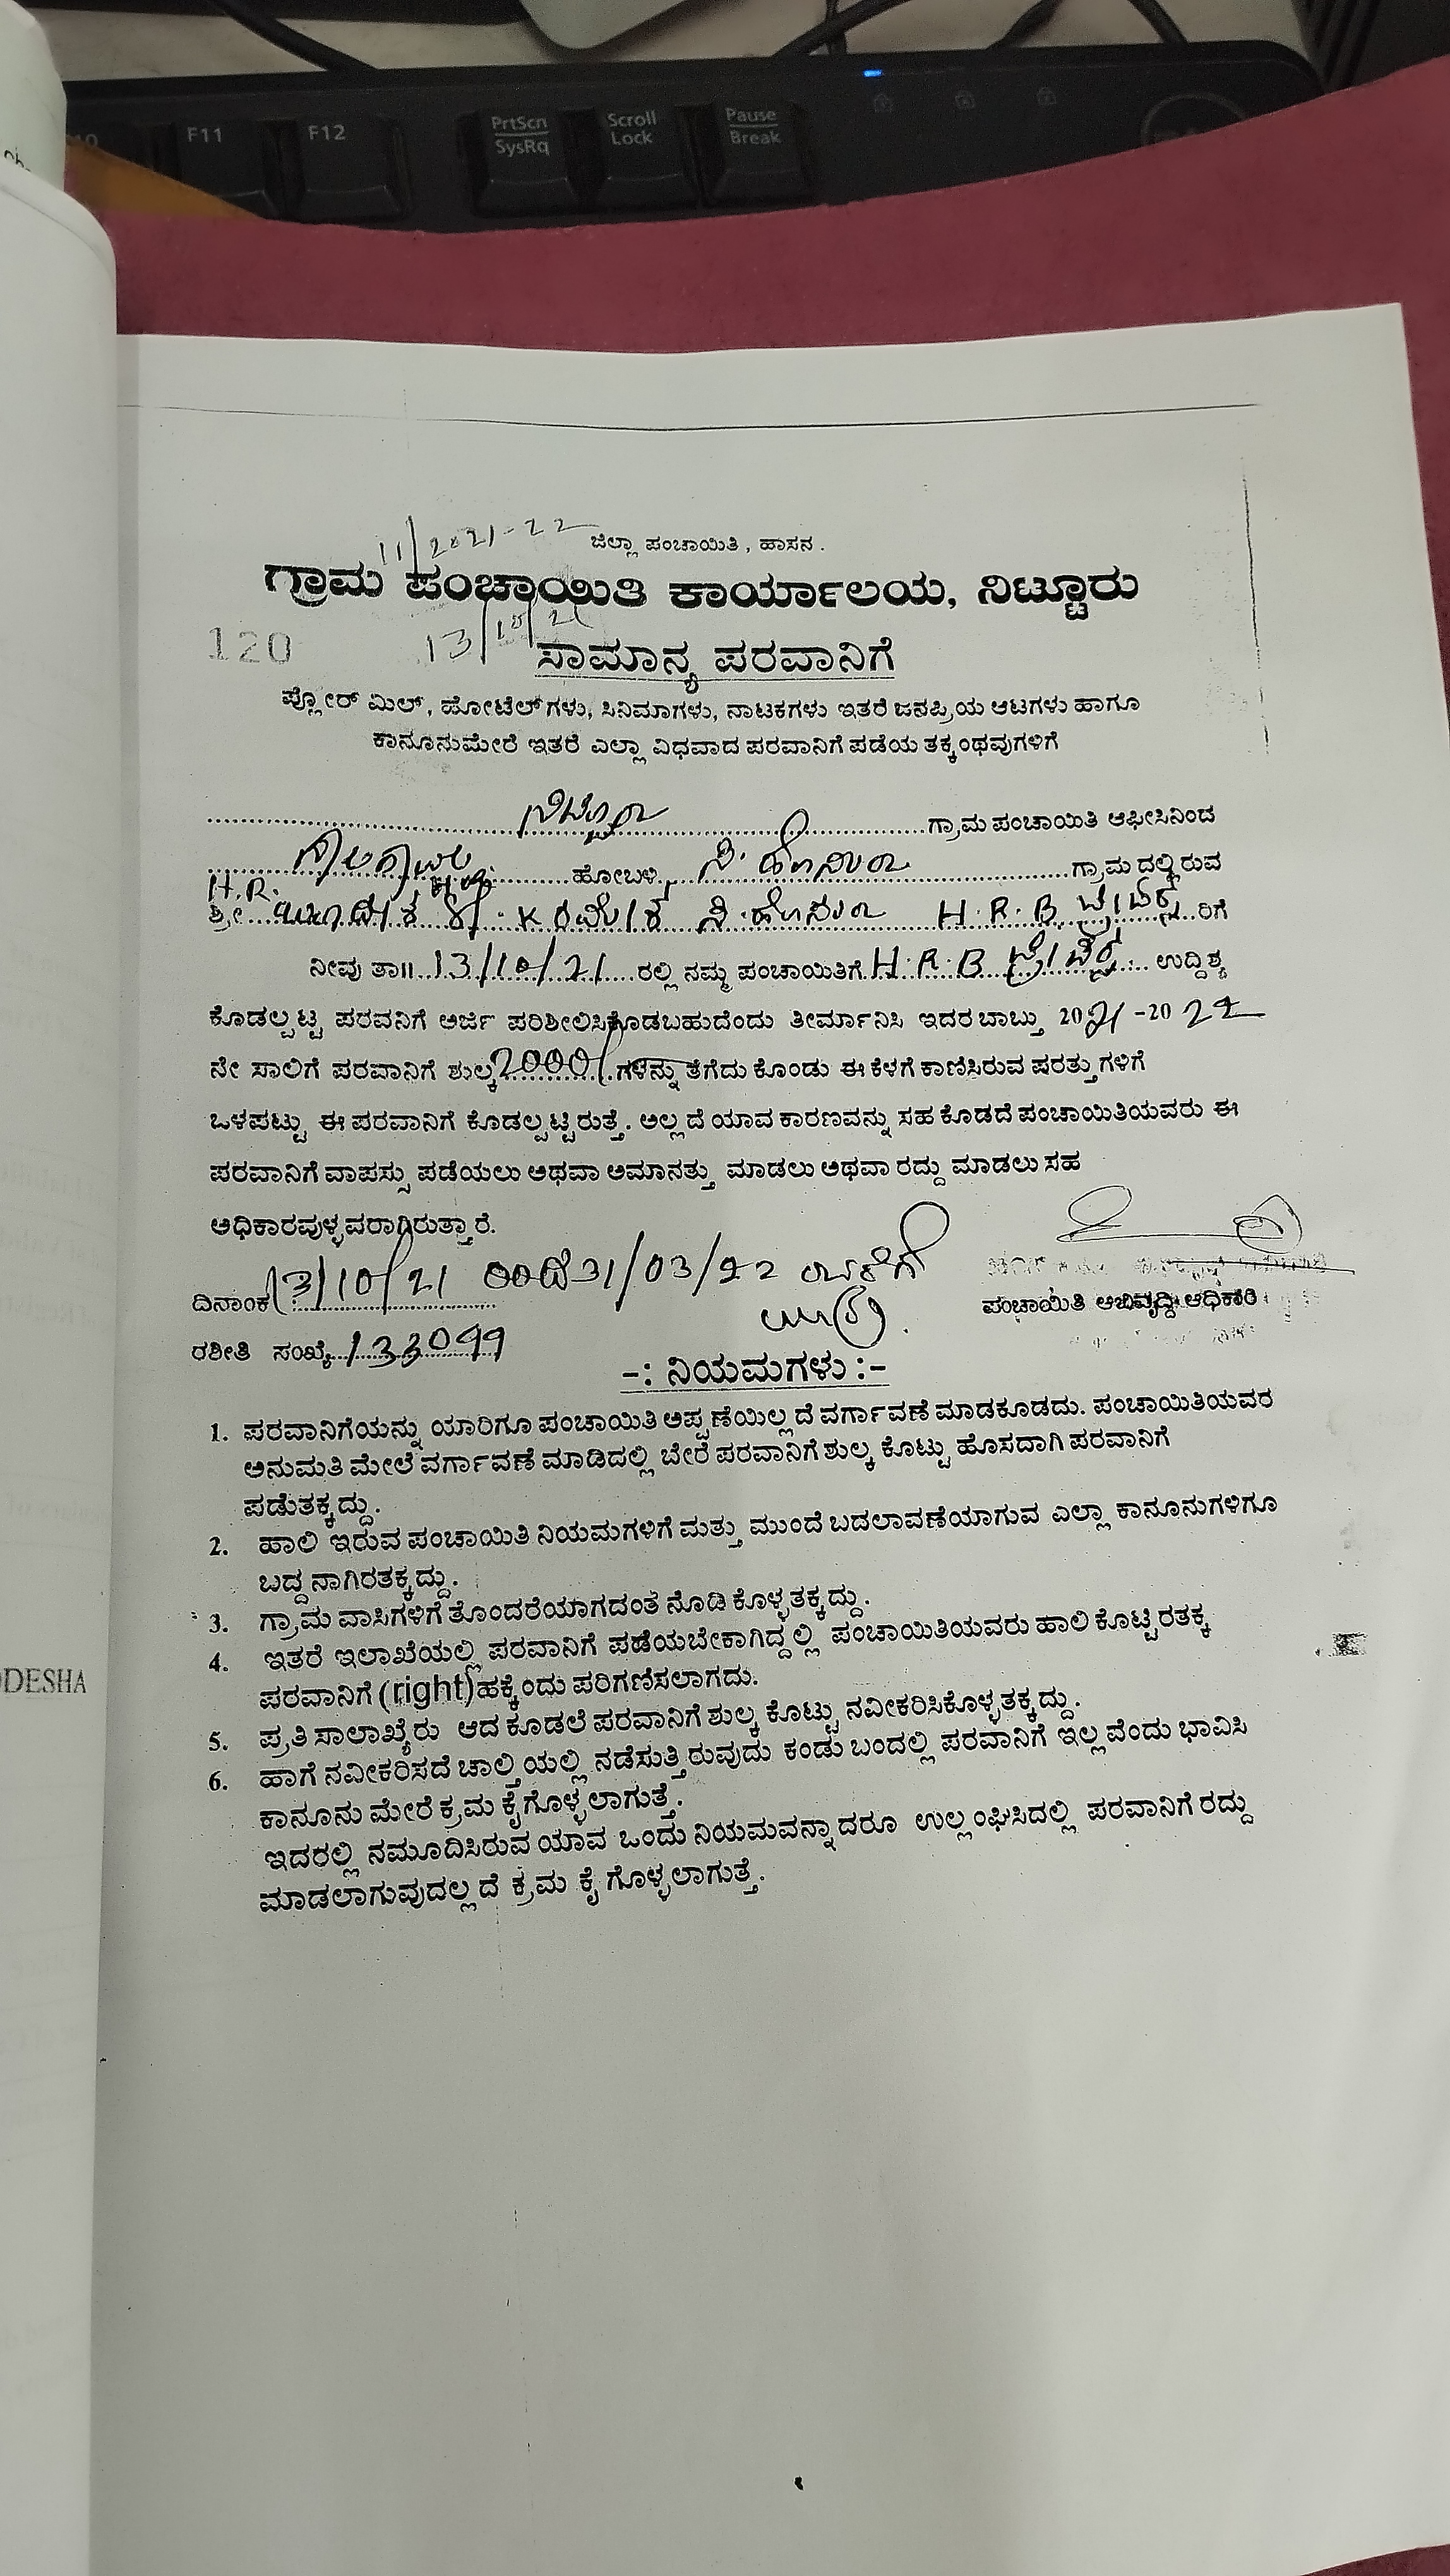 F11
F12
PrtScn
SysRq
Scroll
Lock
Pause
Break
11/2021-22
ಜಿಲ್ಲಾ ಪಂಚಾಯಿತಿ, ಹಾಸನ.
ಗ್ರಾಮ ಪಂಚಾಯಿತಿ ಕಾರ್ಯಾಲಯ, ನಿಟ್ಟೂರು
120
13/10/21
ಸಾಮಾನ್ಯ ಪರವಾನಿಗೆ
ಪ್ಲೋರ್ ಮಿಲ್, ಹೋಟೆಲ್‌ಗಳು, ಸಿನಿಮಾಗಳು, ನಾಟಕಗಳು ಇತರೆ ಜನಪ್ರಿಯ ಆಟಗಳು ಹಾಗೂ
ಕಾನೂನುಮೇರೆ ಇತರೆ ಎಲ್ಲಾ ವಿಧವಾದ ಪರವಾನಿಗೆ ಪಡೆಯ ತಕ್ಕಂಥವುಗಳಿಗೆ
ನಿಟ್ಟೂರು ಗ್ರಾಮ ಪಂಚಾಯಿತಿ ಆಫೀಸಿನಿಂದ
ಹೋಬಳಿ, ಗ್ರಾಮದಲ್ಲಿರುವ
H.R.
ಶ್ರೀ H.R.B ರಿಗೆ
ನೀವು ತಾ॥ 13/10/21 ರಲ್ಲಿ ನಮ್ಮ ಪಂಚಾಯಿತಿಗೆ H.R.B ಉದ್ದಿಶ್ಯ
ಕೊಡಲ್ಪಟ್ಟ ಪರವನಿಗೆ ಅರ್ಜಿ ಪರಿಶೀಲಿಸಿಕೊಡಬಹುದೆಂದು ತೀರ್ಮಾನಿಸಿ ಇದರ ಬಾಬ್ತು 2021-2022
ನೇ ಸಾಲಿಗೆ ಪರವಾನಿಗೆ ಶುಲ್ಕ 2000/- ಗಳನ್ನು ತೆಗೆದು ಕೊಂಡು ಈ ಕೆಳಗೆ ಕಾಣಿಸಿರುವ ಷರತ್ತುಗಳಿಗೆ
ಒಳಪಟ್ಟು ಈ ಪರವಾನಿಗೆ ಕೊಡಲ್ಪಟ್ಟಿರುತ್ತೆ. ಅಲ್ಲದೆ ಯಾವ ಕಾರಣವನ್ನು ಸಹ ಕೊಡದೆ ಪಂಚಾಯಿತಿಯವರು ಈ
ಪರವಾನಿಗೆ ವಾಪಸ್ಸು ಪಡೆಯಲು ಅಥವಾ ಅಮಾನತ್ತು ಮಾಡಲು ಅಥವಾ ರದ್ದು ಮಾಡಲು ಸಹ
ಅಧಿಕಾರವುಳ್ಳವರಾಗಿರುತ್ತಾರೆ.
ದಿನಾಂಕ 13/10/21 ರಿಂದ 31/03/22 ವರೆಗೆ
ಪಂಚಾಯಿತಿ ಅಭಿವೃದ್ಧಿ ಅಧಿಕಾರಿ
ರಶೀತಿ ಸಂಖ್ಯೆ 133099
-: ನಿಯಮಗಳು :-
1. ಪರವಾನಿಗೆಯನ್ನು ಯಾರಿಗೂ ಪಂಚಾಯಿತಿ ಅಪ್ಪಣೆಯಿಲ್ಲದೆ ವರ್ಗಾವಣೆ ಮಾಡಕೂಡದು. ಪಂಚಾಯಿತಿಯವರ
ಅನುಮತಿ ಮೇಲೆ ವರ್ಗಾವಣೆ ಮಾಡಿದಲ್ಲಿ ಬೇರೆ ಪರವಾನಿಗೆ ಶುಲ್ಕ ಕೊಟ್ಟು ಹೊಸದಾಗಿ ಪರವಾನಿಗೆ
ಪಡುತಕ್ಕದ್ದು.
2. ಹಾಲಿ ಇರುವ ಪಂಚಾಯಿತಿ ನಿಯಮಗಳಿಗೆ ಮತ್ತು ಮುಂದೆ ಬದಲಾವಣೆಯಾಗುವ ಎಲ್ಲಾ ಕಾನೂನುಗಳಿಗೂ
ಬದ್ದನಾಗಿರತಕ್ಕದ್ದು.
3. ಗ್ರಾಮ ವಾಸಿಗಳಿಗೆ ತೊಂದರೆಯಾಗದಂತೆ ನೊಡಿ ಕೊಳ್ಳತಕ್ಕದ್ದು.
4. ಇತರೆ ಇಲಾಖೆಯಲ್ಲಿ ಪರವಾನಿಗೆ ಪಡೆಯಬೇಕಾಗಿದ್ದಲ್ಲಿ ಪಂಚಾಯಿತಿಯವರು ಹಾಲಿ ಕೊಟ್ಟಿರತಕ್ಕ
ಪರವಾನಿಗೆ (right) ಹಕ್ಕೆಂದು ಪರಿಗಣಿಸಲಾಗದು.
5. ಪ್ರತಿ ಸಾಲಾಖ್ಯೆರು ಆದ ಕೂಡಲೆ ಪರವಾನಿಗೆ ಶುಲ್ಕ ಕೊಟ್ಟು ನವೀಕರಿಸಿಕೊಳ್ಳತಕ್ಕದ್ದು.
6. ಹಾಗೆ ನವೀಕರಿಸದೆ ಚಾಲ್ತಿಯಲ್ಲಿ ನಡೆಸುತ್ತಿರುವುದು ಕಂಡು ಬಂದಲ್ಲಿ ಪರವಾನಿಗೆ ಇಲ್ಲವೆಂದು ಭಾವಿಸಿ
ಕಾನೂನು ಮೇರೆ ಕ್ರಮ ಕೈಗೊಳ್ಳಲಾಗುತ್ತೆ.
ಇದರಲ್ಲಿ ನಮೂದಿಸಿರುವ ಯಾವ ಒಂದು ನಿಯಮವನ್ನಾದರೂ ಉಲ್ಲಂಘಿಸಿದಲ್ಲಿ ಪರವಾನಿಗೆ ರದ್ದು
ಮಾಡಲಾಗುವುದಲ್ಲದೆ ಕ್ರಮ ಕೈಗೊಳ್ಳಲಾಗುತ್ತೆ.
DESHA